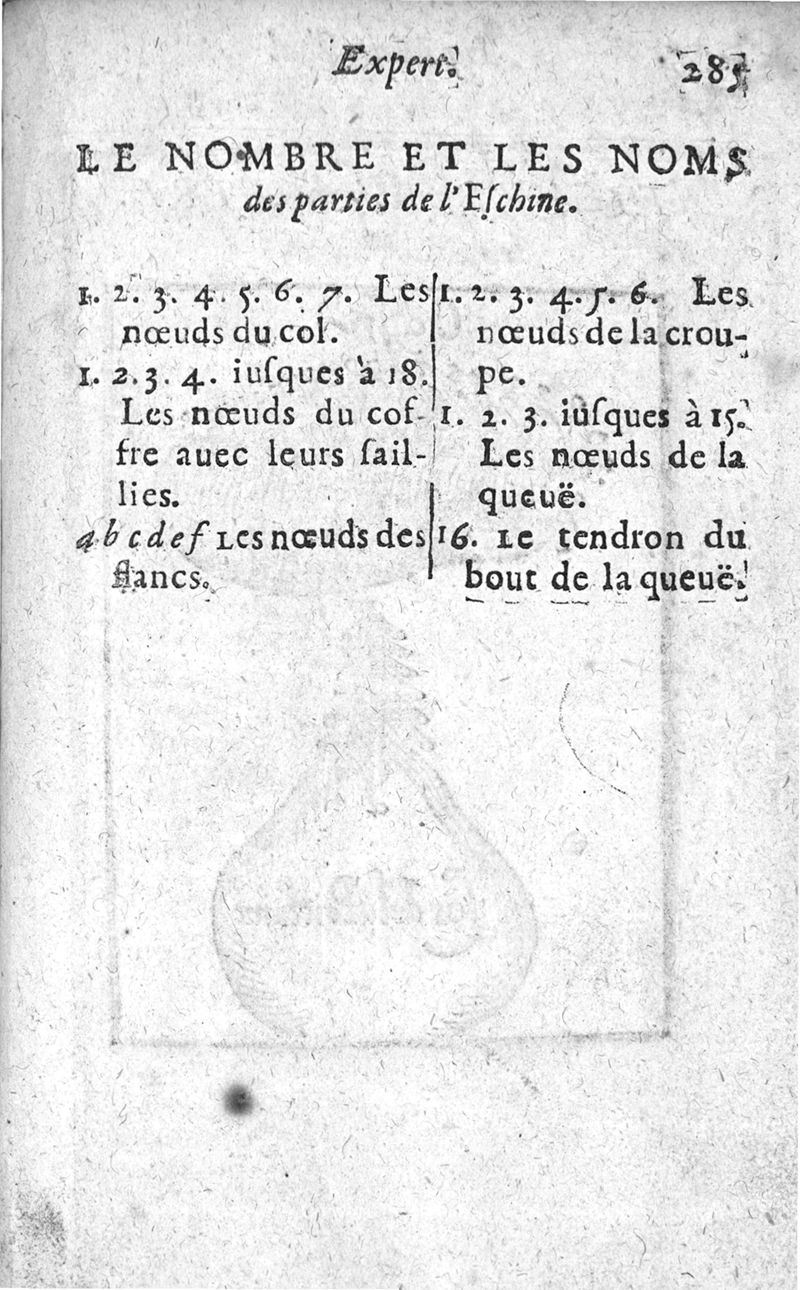 Expert. 285
LE NOMBRE ET LES NOMS
des parties de l'Eſchine.
1. 2. 3. 4. 5. 6. 7. Les
nœuds du col.
1. 2. 3. 4. iuſques à 18.
Les nœuds du cof-
fre auec leurs ſail-
lies.
a b c d e f Les nœuds des
flancs.
1. 2. 3. 4. 5. 6. Les
nœuds de la crou-
pe.
1. 2. 3. iuſques à 15.
Les nœuds de la
queuë.
16. Le tendron du
bout de la queuë.